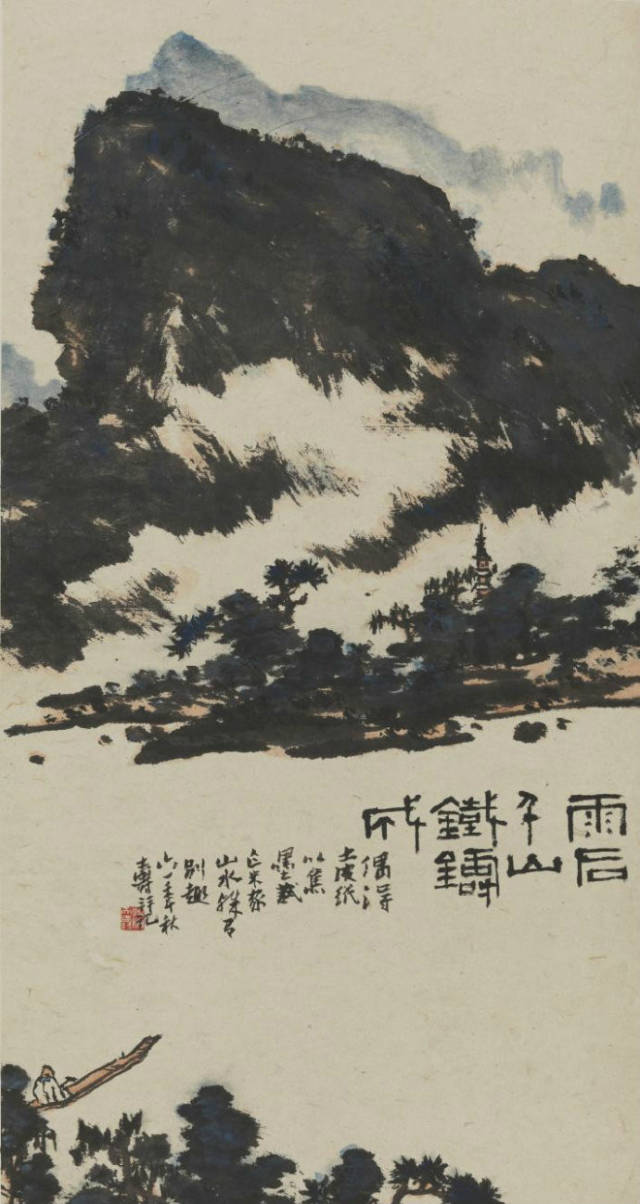 雨后
千山
鐵鑄
成
偶得
土皮紙
以焦
墨
米家
山水殊有
别趣
六一年秋
壽